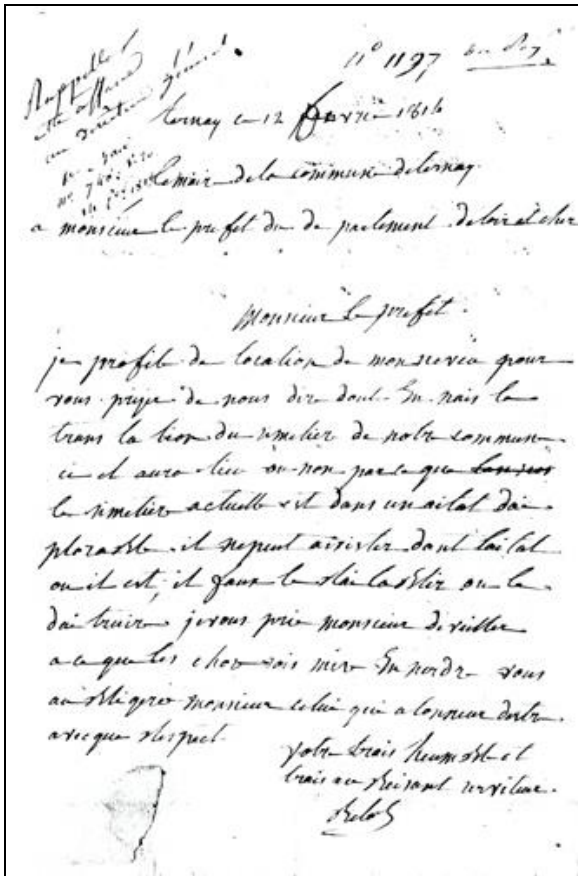 Rappeller
cette affaire
au directeur général
n° 1197
ternay ce 12 fevrie 1816
le maire de la commune de ternay
a monsieur le prefet du de partement deloir et cher
Monsieur le prefet
je profite de location de mon neveu pour
vous prije de nous dire dout En nais la
trans la tion du simetier de notre commune
ci il aura lieu ou non parce que
le simetier actuelle est dans un aitat dai
plorable. il nepeut aixister dant laitat
ou il est, il faux le raitablir ou le
daitruire jevous prie monsieur de veiller
a ce que les chose sois mire En nordre vous
aubligerè monsieur celui qui a lonneur dertre
avecque respect
votre trais heumble et
trais au beisant serviteur